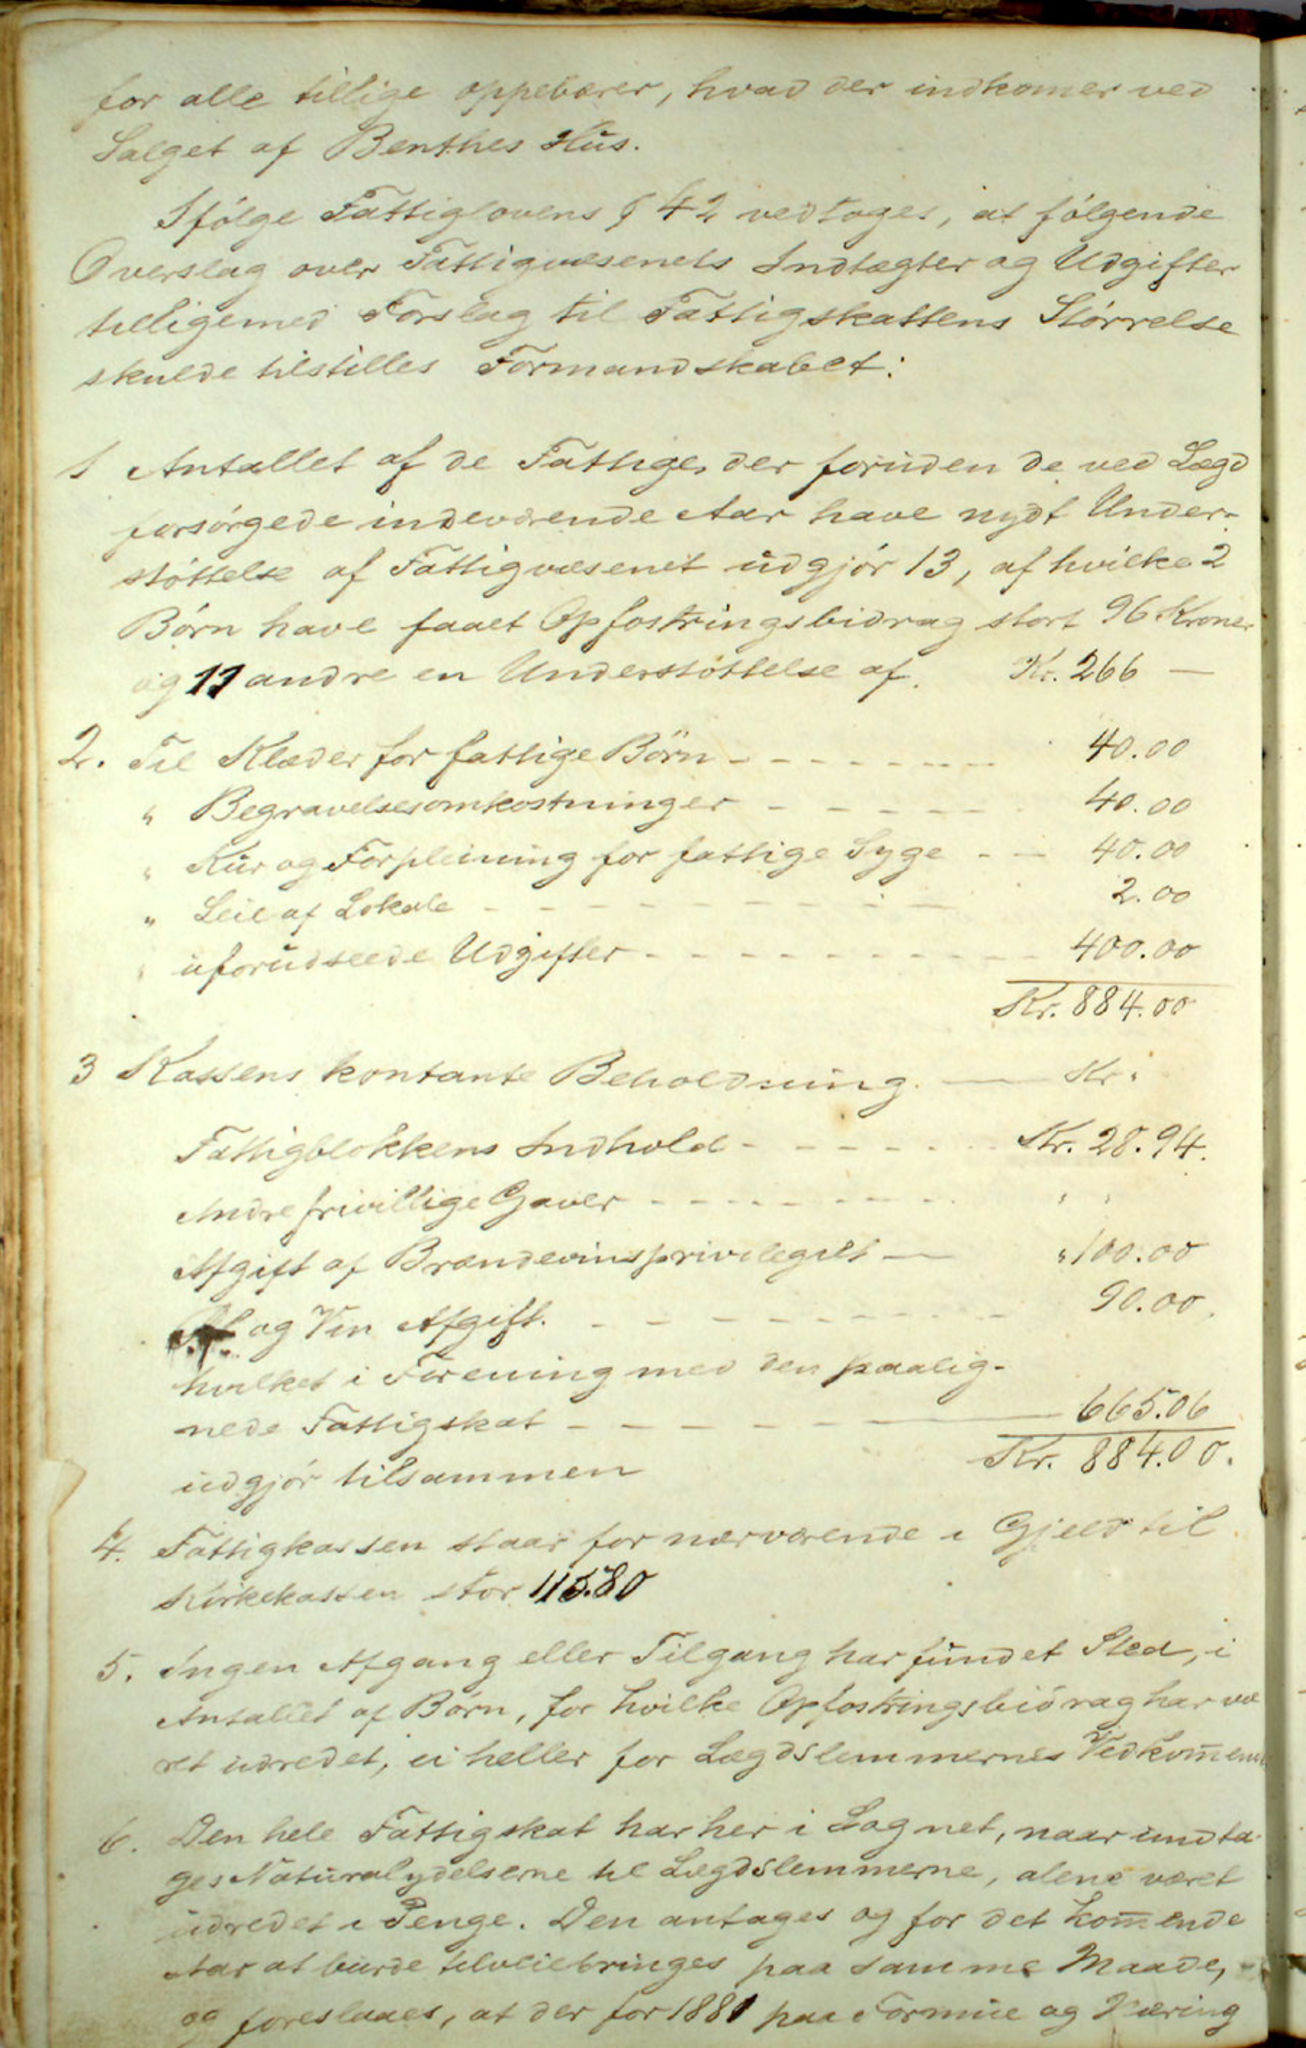 for alle tillige oppebærer, hvad der indkomer ved
Salget af Benthes Hus.
Ifølge Fattiglovens § 42 vedtoges, at følgende
Overslag over Fattigvæsenets Indtægter og Udgifter
tilligemed Forslag til Fattigskattens Størrelse
skulde tilstilles Formandskabet:
1 Antallet af de Fattige, der foruden de ved Lægd
forsørgede indeværende Aar have nydt Under-
støttelse af Fattigvæsenet udgjør 13, af hvilke 2
Børn have faaet Opfostringsbidrag stort 96 Kroner
og 11 andre en Understøttelse af. Kr. 266 —
2. Til Klæder for fattige Börn - - - - - - - - 40.00
" Begravelsesomkostninger - - - - - - 40.00
" Kur og Forpleining for fattige Syge - - 40.00
" Leie af Lokale - - - - - - - - - 2.00
" uforudseede Udgifter - - - - - - - - - - - 400.00
Kr. 884.00
3 Kassens kontante Beholdning. — Kr.
Fattigblokkens Indhold - - - - - - Kr. 28.94.
Andre frivillige Gaver - - - - - - - - " "
Afgift af Brændevinsprivilegiet — " 100.00
Øl og Vin Afgift. - - - - - - - - - 90.00.
hvilket i Forening med den paalig-
nede Fattigskat - - - - - — 665.06
udgjør tilsammen Kr. 884.00.
4. Fattigkassen staar for nærværende i Gjeld til
Kirkekassen stor 115.80
5. Ingen Afgang eller Tilgang har fundet Sted, i
Antallet af Børn, for hvilke Opfostringsbidrag har væ
ret udredet, ei heller for Lægdslemmernes Vedkom̅ende
6. Den hele Fattigskat har her i Sognet, naar undta-
ges Naturalydelserne til Lægdslemmerne, alene været
udredet i Penge. Den antages og for det kom̅ende
Aar at burde tilveiebringes paa samme Maade,
og foreslaaes, at der for 1881 paa Formue og Næring